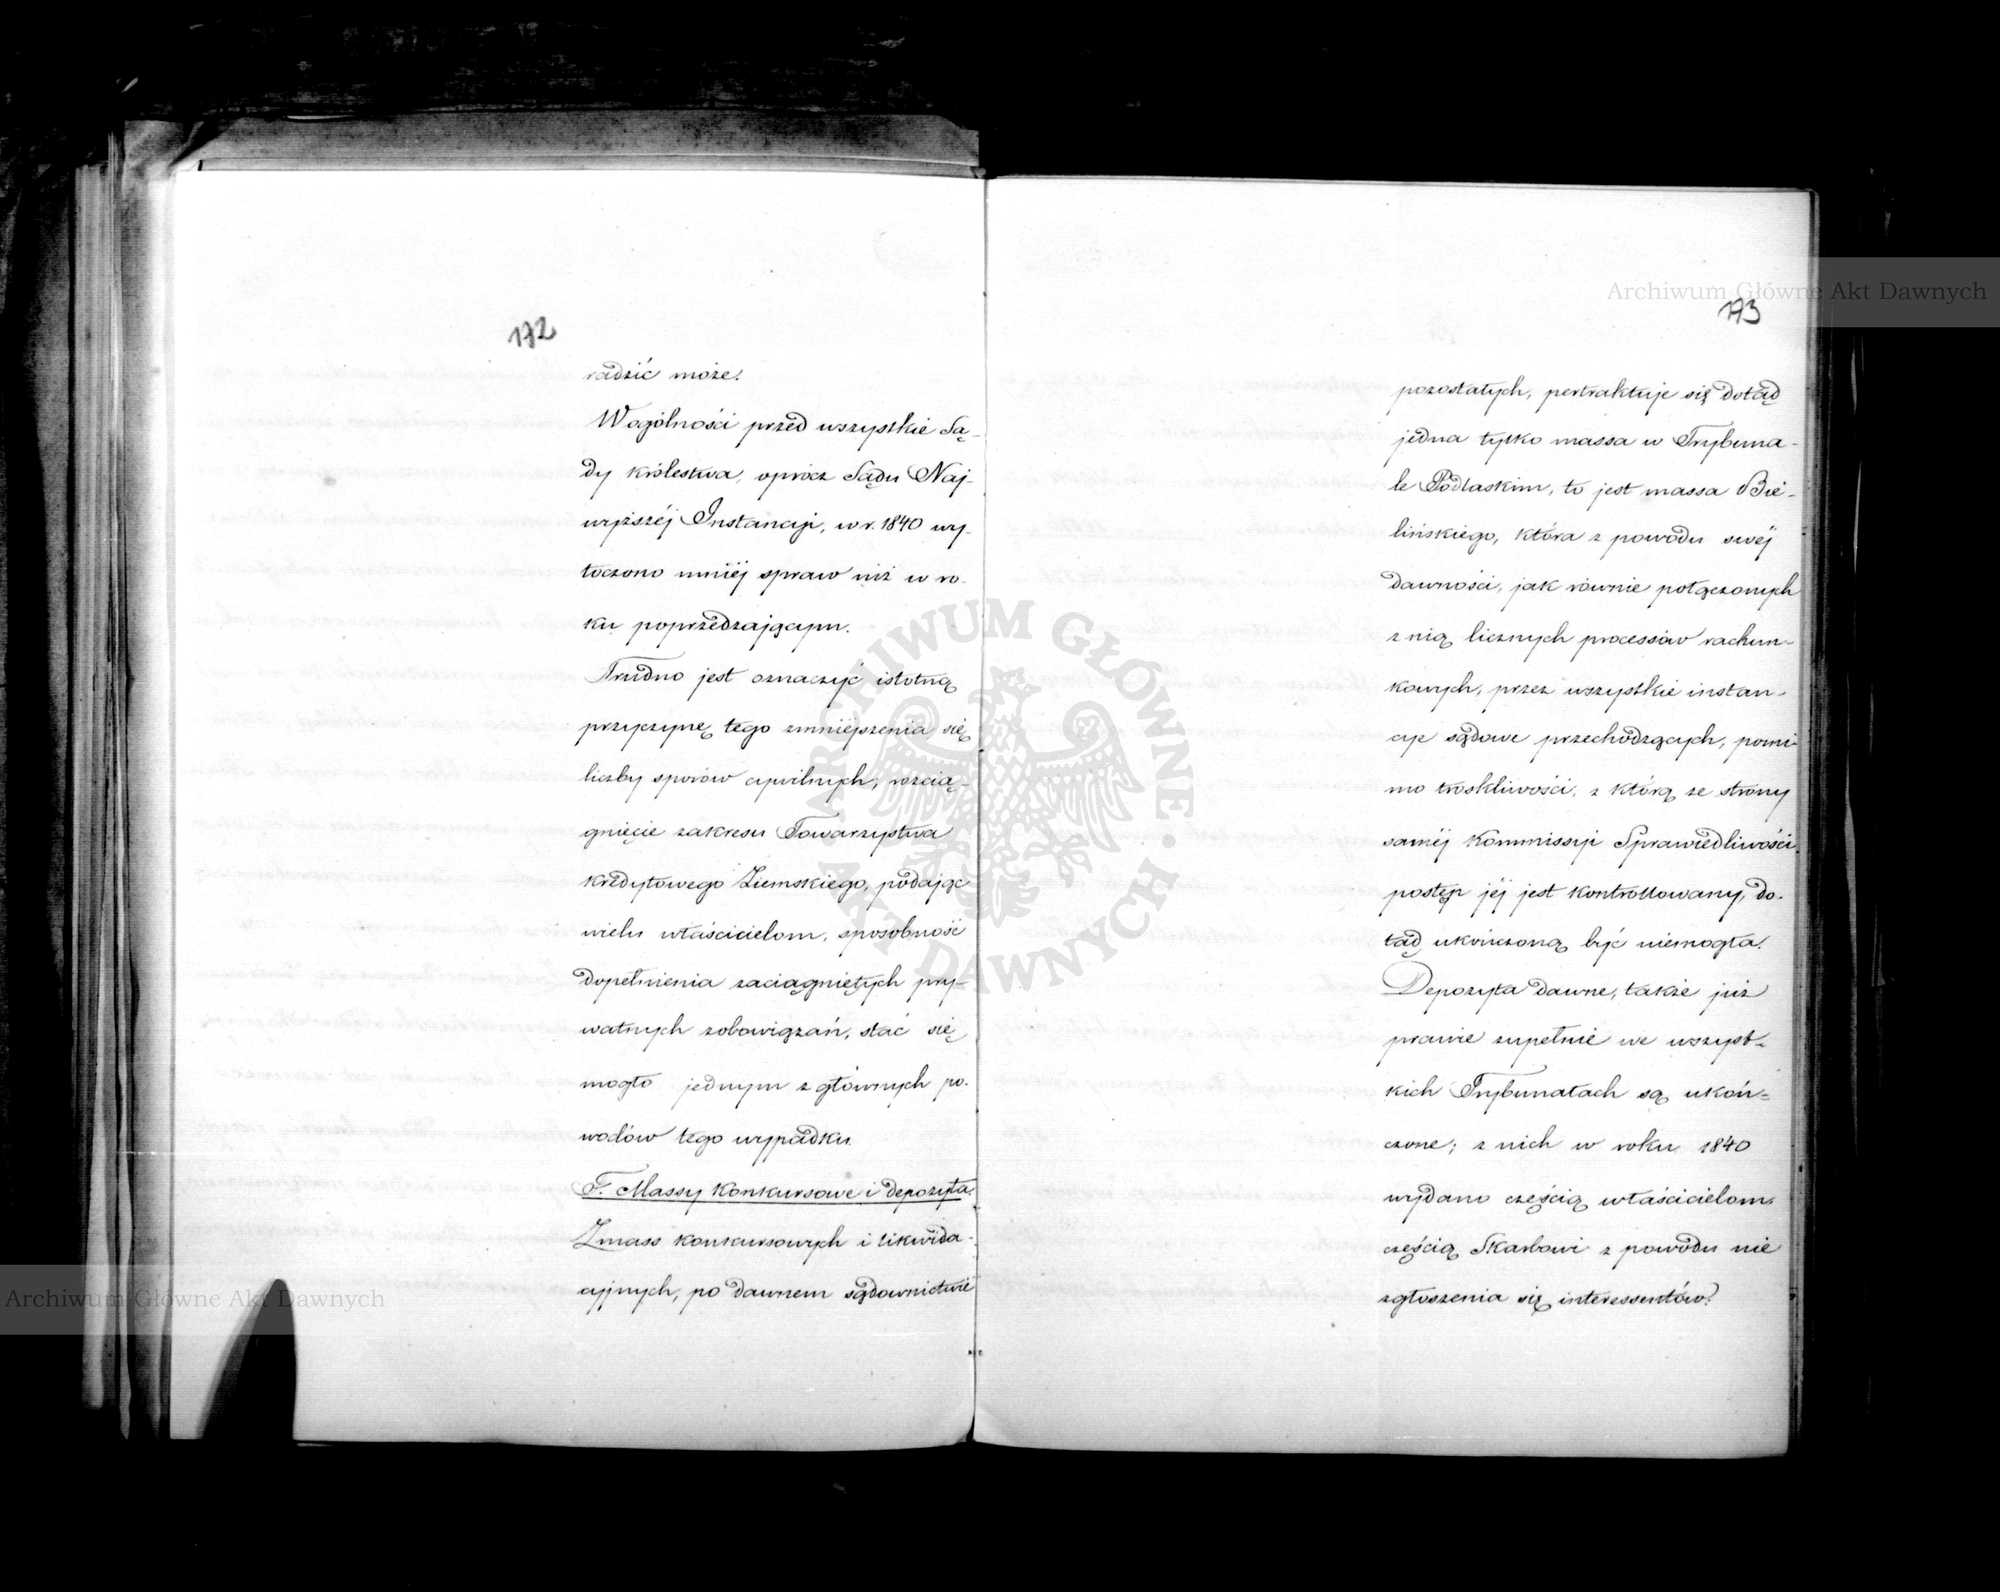 172
radzić może.
Wogólności przed wszystkie Są-
dy królestwa, oprócz Sądu Naj-
wyższéj Instancyi, w r. 1840 wy-
toczono mniéj spraw niż w ro-
ku poprzedzającym.
Trudno jest oznaczyć istotną
przyczynę tego zmniéjszenia się
liczby sporów cywilnych, rozcią-
gnięcie zakresu Towarzystwa
kredytowego Ziemskiego, podając
wielu właścicielom, sposobność
dopełnienia zaciągniętych pry-
watnych zobowiązań, stać się
mogło jednym z głównych po-
wodów tego wypadku.
F. Massy Konkursowe i depozyta.
Z mass konkursowych i likwida-
cyjnych, po dawnem sądownictwie
173
pozostałych, pertraktuje się dotąd
jedna tylko massa w Trybuna-
le Podlaskim, to jest massa Bie-
lińskiego, która z powodu swéj
dawności, jak równie połączonych
z nią licznych processów rachun-
kowych, przez wszystkie instan-
cye sądowe przechodzących, pomi-
mo troskliwości, z którą ze strony
saméj Kommissyi Sprawiedliwości
postęp jéj jest kontrollowany, do-
tąd ukończoną być niemogła.
Depozyta dawne, także już
prawie zupełnie we wszyst-
kich Trybunałach są ukoń-
czone; z nich w roku 1840
wydano częścią właścicielom,
częścią Skarbowi z powodu nie
zgłoszenia się interessentów.
Archiwum Główne Akt Dawnych
Archiwum Główne Akt Dawnych
ARCHIWUM GŁÓWNE · AKT DAWNYCH ·